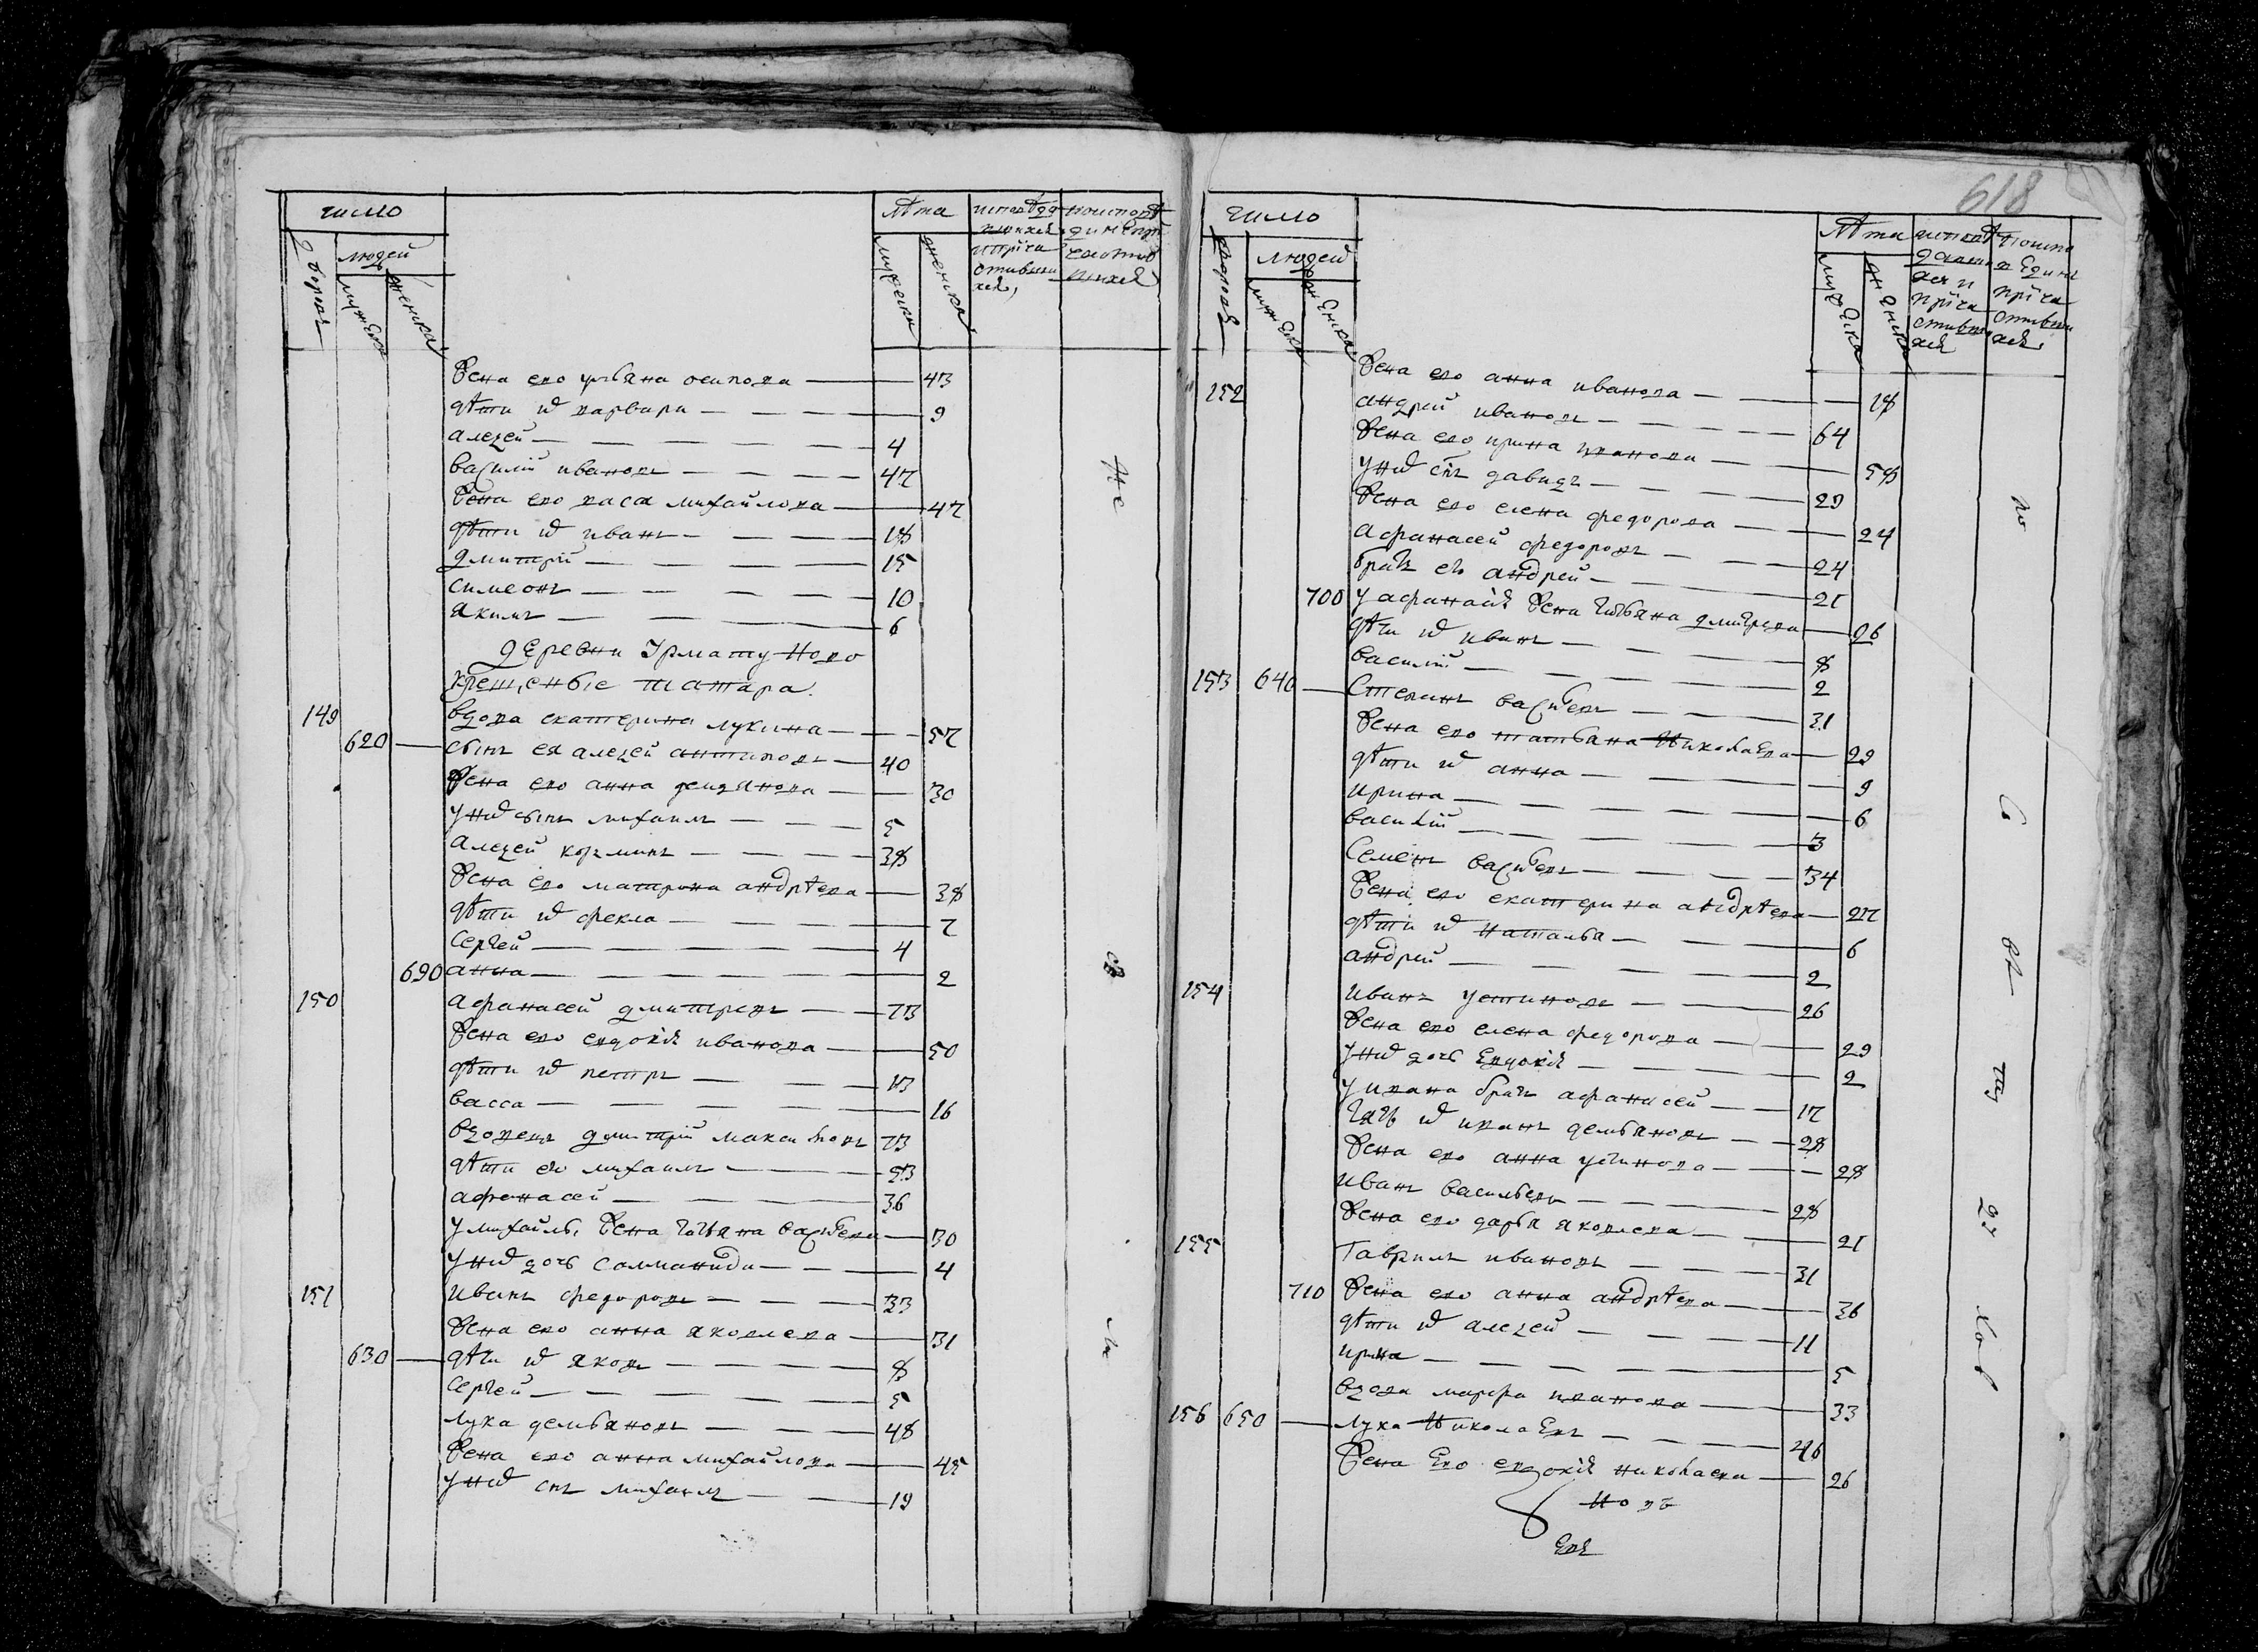 число
лѣта
людей
дворовъ
мужеска
женска
мужеска
женска
жена его ульяна осипова — 43
дѣти их варвара — 9
алеѯей — 4
василий иванов — 47
жена его васа михайлова — 47
дѣти их иванъ — 18
дмитрий — 15
симеонъ — 10
якимъ — 6
деревни Урмату Ново
крещеные татара
149
вдова екатерина лукина — 57
620 — сынъ ея алеѯей антиповъ — 40
жена его анна демянова — 30
у них сынъ михаилъ — 5
алеѯей козминъ — 38
жена его матрона андрѣева — 38
дѣти их фекла — 7
сергей — 4
690 анна — 2
150
афанасей дмитревъ — 73
жена его евдокия иванова — 50
дѣти их петръ — 13
васса — 16
вдовецъ дмитрий максимовъ 73
дѣти его михаилъ — 53
афанасей — 36
у михайлы жена татьяна васильева — 30
у них дочь саломанида — 4
151
иванъ федоровъ — 33
жена его анна яковлева — 31
630 — дѣти их яковъ — 8
сергей — 5
лука демьяновъ — 48
жена его анна михайлова — 45
у них сынъ михаилъ — 19
618
число
лѣта
людей
дворовъ
мужеска
женска
мужеска
женска
жена его анна иванова — 18
152
андрей ивановъ — 64
жена его ирина иванова — 58
у них снъ давидъ — 29
жена его елена федорова — 24
афанасей федоровъ — 24
братъ его андрей — 21
700 у афанасия жена татьяна дмитрева — 26
дѣти их иванъ — 8
василий — 2
153 640 — Степанъ васильевъ — 31
жена его татьяна николаева — 29
дѣти их анна — 9
ирина — 6
василий — 3
Семенъ васильевъ — 34
жена его екатерина андрѣева — 27
дѣти их наталья — 6
андрей — 2
154
иванъ устиновъ — 26
жена его елена федорова — 29
у них дочь евдокия — 2
у ивана братъ афанасей — 17
зять их иванъ демьяновъ — 28
жена его анна устинова — 28
иванъ васильевъ — 28
жена его дарья яковлева — 21
155
Гаврилъ ивановъ — 31
710 жена его анна андрѣева — 36
дѣти их алеѯей — 11
ирина — 5
вдова марфа иванова — 33
156 650 — лука николаевъ — 46
жена его евдокия николаева — 26